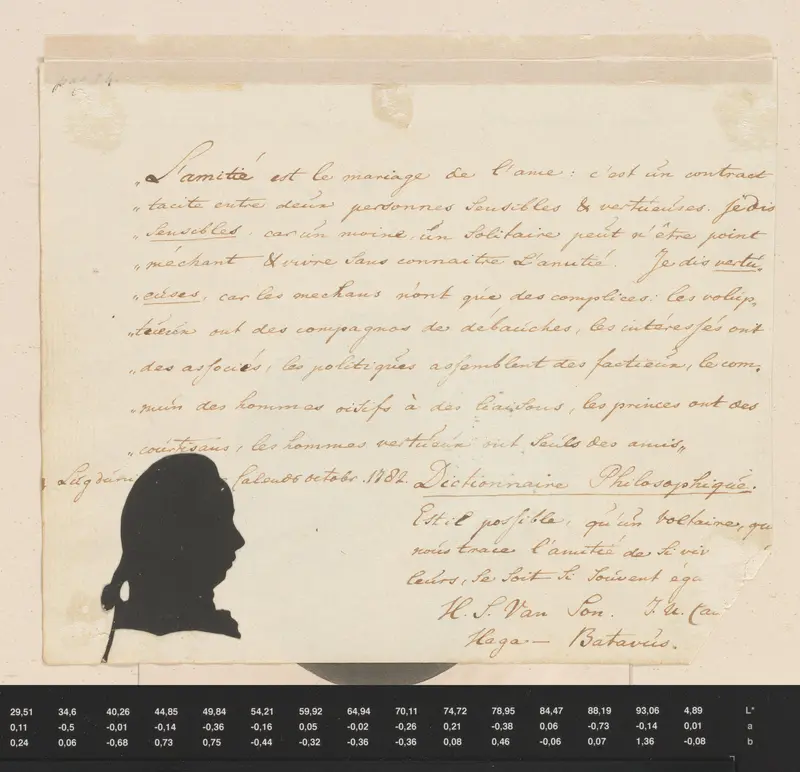 pag 24.
„L'amitié est le mariage de l'ame : c'est un contract
„tacite entre deux personnes sensibles & vertueuses. Je dis
„sensibles, car un moine, un solitaire peut n'être point
„méchant & vivre sans connaitre L'amitié. Je dis vertu„
„euses, car les mechans n'ont que des complices: les volup„
„tueux ont des compagnos de débauches, les intéressés ont
„des associés, les politiques assemblent des factieux, le com„
„mun des hommes oisifs à des liaisons, les princes ont des
„courtisans, les hommes vertueux ont seuls des amis„
Lugduni Calends octobr. 1782. Dictionnaire Philosophique.
Est il possible, qu'un Voltaire, qu
nous trace l'amitié de si viv
leurs, se soit si souvent éga
H. S. Van Son. J. U. Ca
Haga — Batavus.
29,51 34,6 40,26 44,85 49,84 54,21 59,92 64,94 70,11 74,72 78,95 84,47 88,19 93,06 4,89 L*
0,11 -0,5 -0,01 -0,14 -0,36 -0,16 0,05 -0,02 -0,26 0,21 -0,38 0,06 -0,73 -0,14 0,01 a
0,24 0,06 -0,68 0,73 0,75 -0,44 -0,32 -0,36 -0,36 0,08 0,46 -0,06 0,07 1,36 -0,08 b